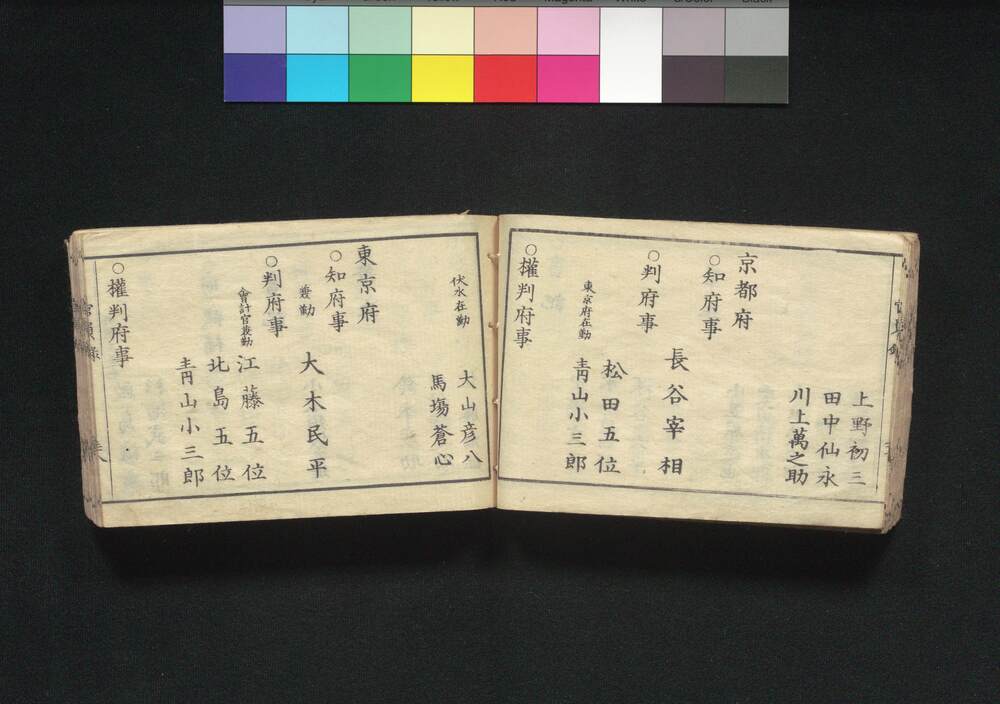 上野初三
田中仙永
川上萬之助
京都府
○知府事
長谷宰相
○判府事
松田五位
東京府在勤
青山小三郎
○權判府事
大山彦八
伏水在勤
馬塲蒼心
東京府
○知府事
大木民平
兼勤
○判府事
江藤五位
會計官兼勤
北島五位
青山小三郎
○權判府事